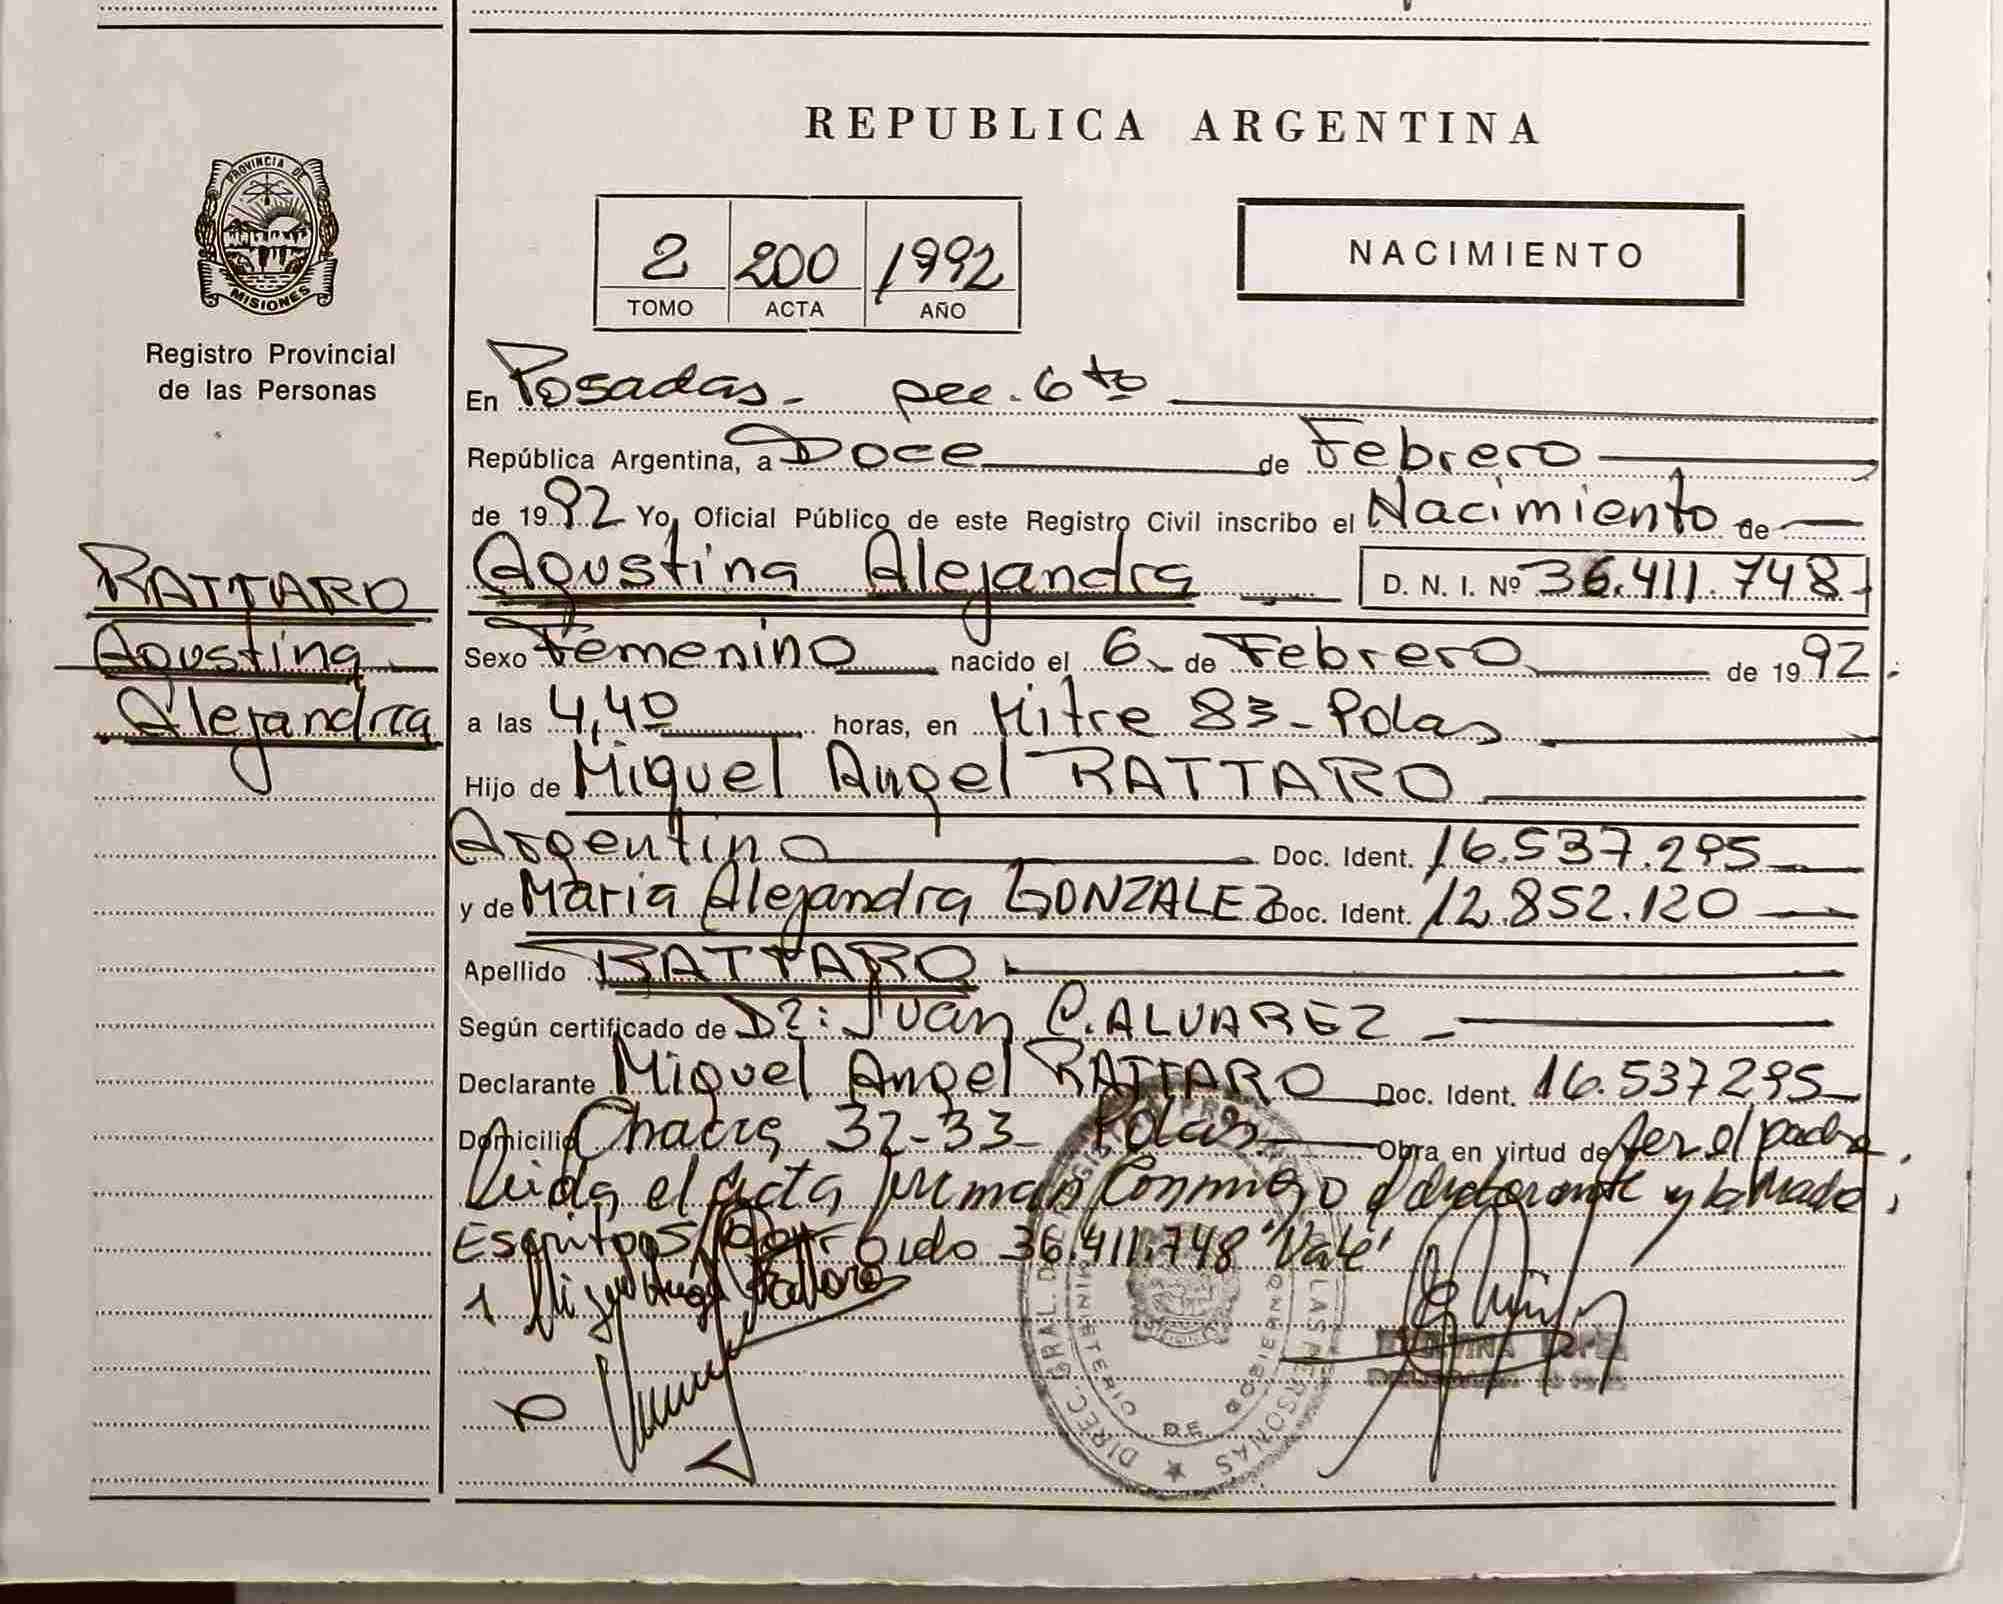 PROVINCIA DE
MISIONES
Registro Provincial
de las Personas
RATTARO
Agustina
Alejandra
REPUBLICA ARGENTINA
2 200 1992
TOMO ACTA AÑO
NACIMIENTO
En Posadas - 6to
República Argentina, a Doce de Febrero
de 1992 Yo, Oficial Público de este Registro Civil inscribo el Nacimiento de
Agustina Alejandra D. N. I. Nº 36.411.748
Sexo Femenino nacido el 6 de Febrero de 1992
a las 4,40 horas, en Mitre 83 - Pdas
Hijo de Miguel Angel RATTARO
Argentino Doc. Ident. 16.537.295
y de Maria Alejandra GONZALEZ Doc. Ident. 12.852.120
Apellido RATTARO
Según certificado de Juan C. ALVAREZ
Declarante Miguel Angel RATTARO Doc. Ident. 16.537295
Domicilio Chacra 32-33 Pdas Obra en virtud de ser el padre
Leida el acta firman conmigo el declarante y la Madre
36.411.748 "Vale"
DIREC. GRAL. DE LAS PERSONAS
MINISTERIO DE GOBIERNO